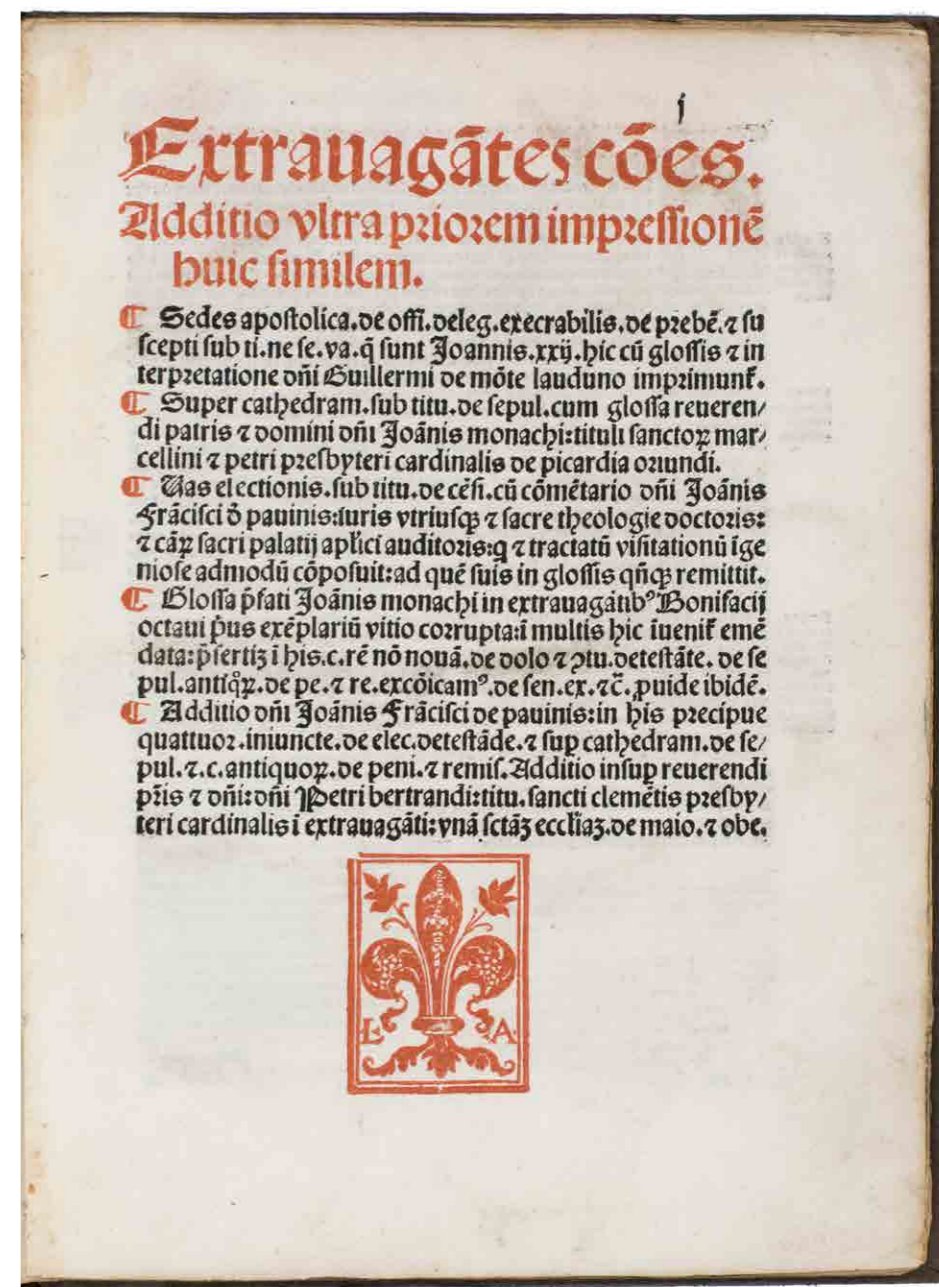 j
Extrauagãtes cões.
Additio vltra priorem impressionẽ
huic similem.
¶ Sedes apostolica.de offi.deleg.execrabilis.de prebẽ.⁊ su
scepti sub ti.ne se.va.q̃ sunt Joannis.xxij.hic cũ glossis ⁊ in
terpretatione dñi Guillermi de mõte lauduno imprimunt᷑.
¶ Super cathedram.sub titu.de sepul.cum glossa reueren/
di patris ⁊ domini dñi Joãnis monachi:tituli sanctoꝝ mar/
cellini ⁊ petri presbyteri cardinalis de picardia oriundi.
¶ Uas electionis.sub titu.de cẽsi.cũ cõmẽtario dñi Joãnis
Frãcisci õ pauinis:iuris vtriusqꝫ ⁊ sacre theologie doctoris:
⁊ cãꝝ sacri palatij apl̃ici auditoris:q ⁊ tractatũ visitationũ ĩge
niose admodũ cõposuit:ad quẽ suis in glossis qñqꝫ remittit.
¶ Glossa p̃fati Joãnis monachi in extrauagãtibꝰ Bonifacij
octaui p̃us exẽplariũ vitio corrupta:ĩ multis hic ĩuenit᷑ emẽ
data:p̃sertiꝫ ĩ his.c.rẽ nõ nouã.de dolo ⁊ ↄtu.detestãte.de se
pul.antiq̊ꝝ.de pe.⁊ re.excõicamꝰ.de sen.ex.⁊c̃.ꝓuide ibidẽ.
¶ Additio dñi Joãnis Frãcisci de pauinis:in his precipue
quattuor.iniuncte.de elec.detestãde.⁊ suꝑ cathedram.de se/
pul.⁊.c.antiquoꝝ.de peni.⁊ remis.Additio insuꝑ reuerendi
pr̃is ⁊ dñi:dñi Petri bertrandi:titu.sancti clemẽtis presby/
teri cardinalis ĩ extrauagãti:vnã sctãꝫ eccl̃iaꝫ.de maio.⁊ obe.
L. A.